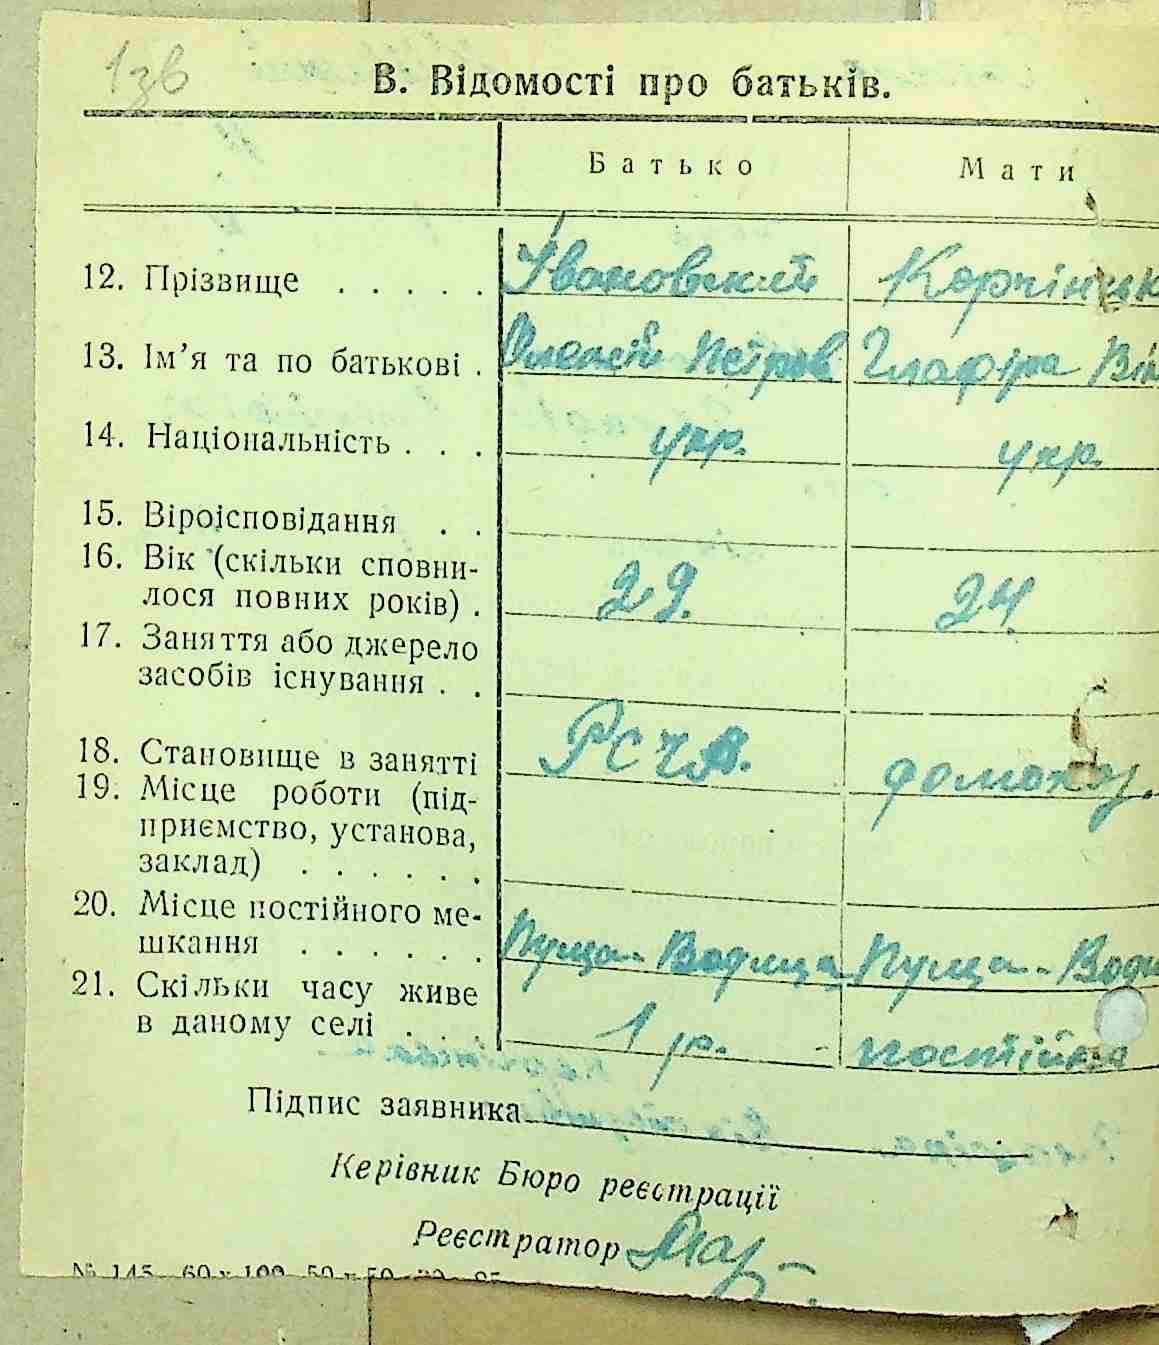 1зв
В. Відомості про батьків.
Батько Мати
12. Прізвище . . . . . Івановський Корчінськ
13. Ім’я та по батькові . Олексій Петров Глафіра Вік
14. Національність . . . укр. укр.
15. Віроісповідання . .
16. Вік (скільки сповни-
лося повних років) . 29. 24.
17. Заняття або джерело
засобів існування . .
18. Становище в занятті РСЧА. домохоз.
19. Місце роботи (під-
приємство, установа,
заклад) . . . . . .
20. Місце постійного ме-
шкання . . . . . . Пуща-Водица Пуща-Води
21. Скільки часу живе
в даному селі . . . 1 р. постійна
Підпис заявника
Керівник Бюро реєстрації
Реєстратор
№ 145